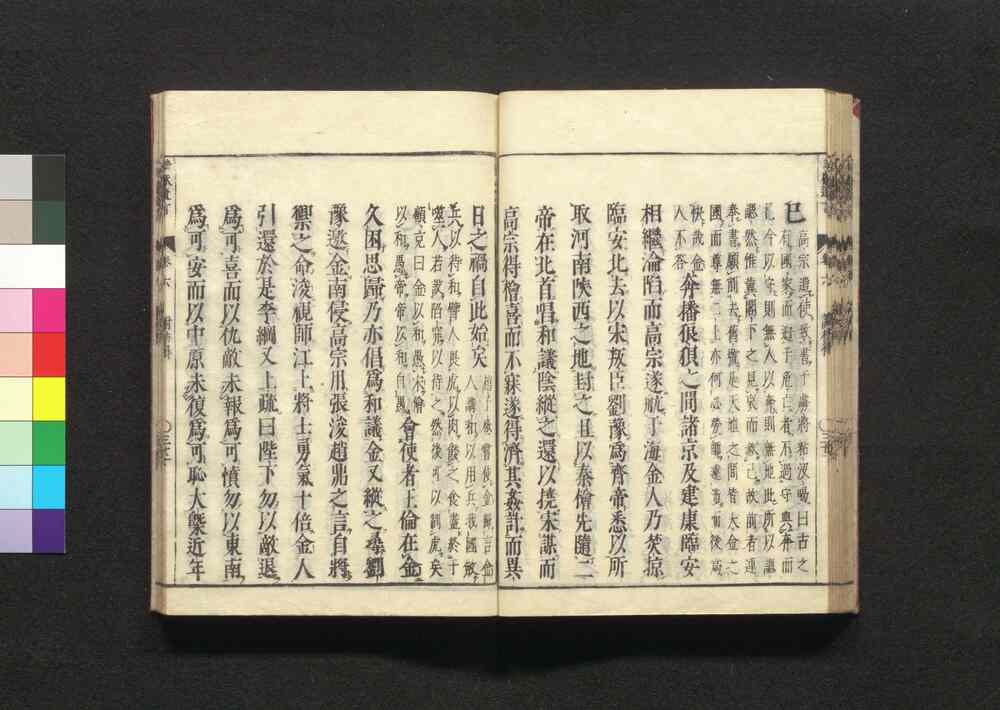 已高宗遣使致書于虜將粘沒喝曰古之
有國家而迫于危亡者不過守與奔而
已今以守則無人以奔則無地此所以諰
諰然惟冀閣下之見哀而赦已故前者連
奉書願削去舊號是天地之間皆大金之
國而尊無二上亦何必勞師遠涉而後為
快哉金
人不答奔播狼狽之間諸京及建康臨安
相繼淪陷而高宗遂航于海金人乃焚掠
臨安北去以宋叛臣劉豫為齊帝悉以所
取河南陝西之地封之且以秦檜先隨二
帝在北首唱和議陰縱之還以撓宋謀而
高宗得檜喜而不寐遂得濟其姦計而異
日之禍自此始矣
人講和以用兵我國斂
兵以待和譬人畏虎以肉餧之食盡終于
噬人若設陷穽以待之然後可以制虎矣
以和愚帝帝以和自愚會使者王倫在金
久困思歸乃亦倡為和議金又縱之尋劉
豫邀金南侵高宗用張浚趙鼎之言自將
禦之命浚視師江上將士勇氣十倍金人
引還於是李綱又上疏曰陛下勿以敵退
為可喜而以仇敵未報為可憤勿以東南
為可安而以中原未復為可恥大槩近年